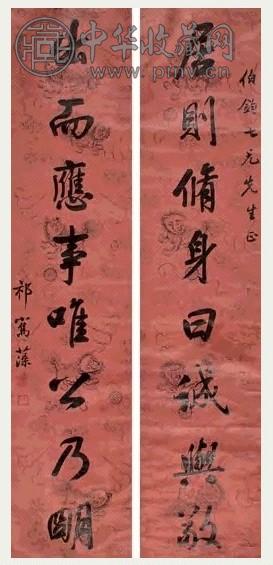 中华收藏网
www.pmv.cn
伯七兄先生正
居則脩身曰誠與敬
出而應事唯公乃明
祁寯藻